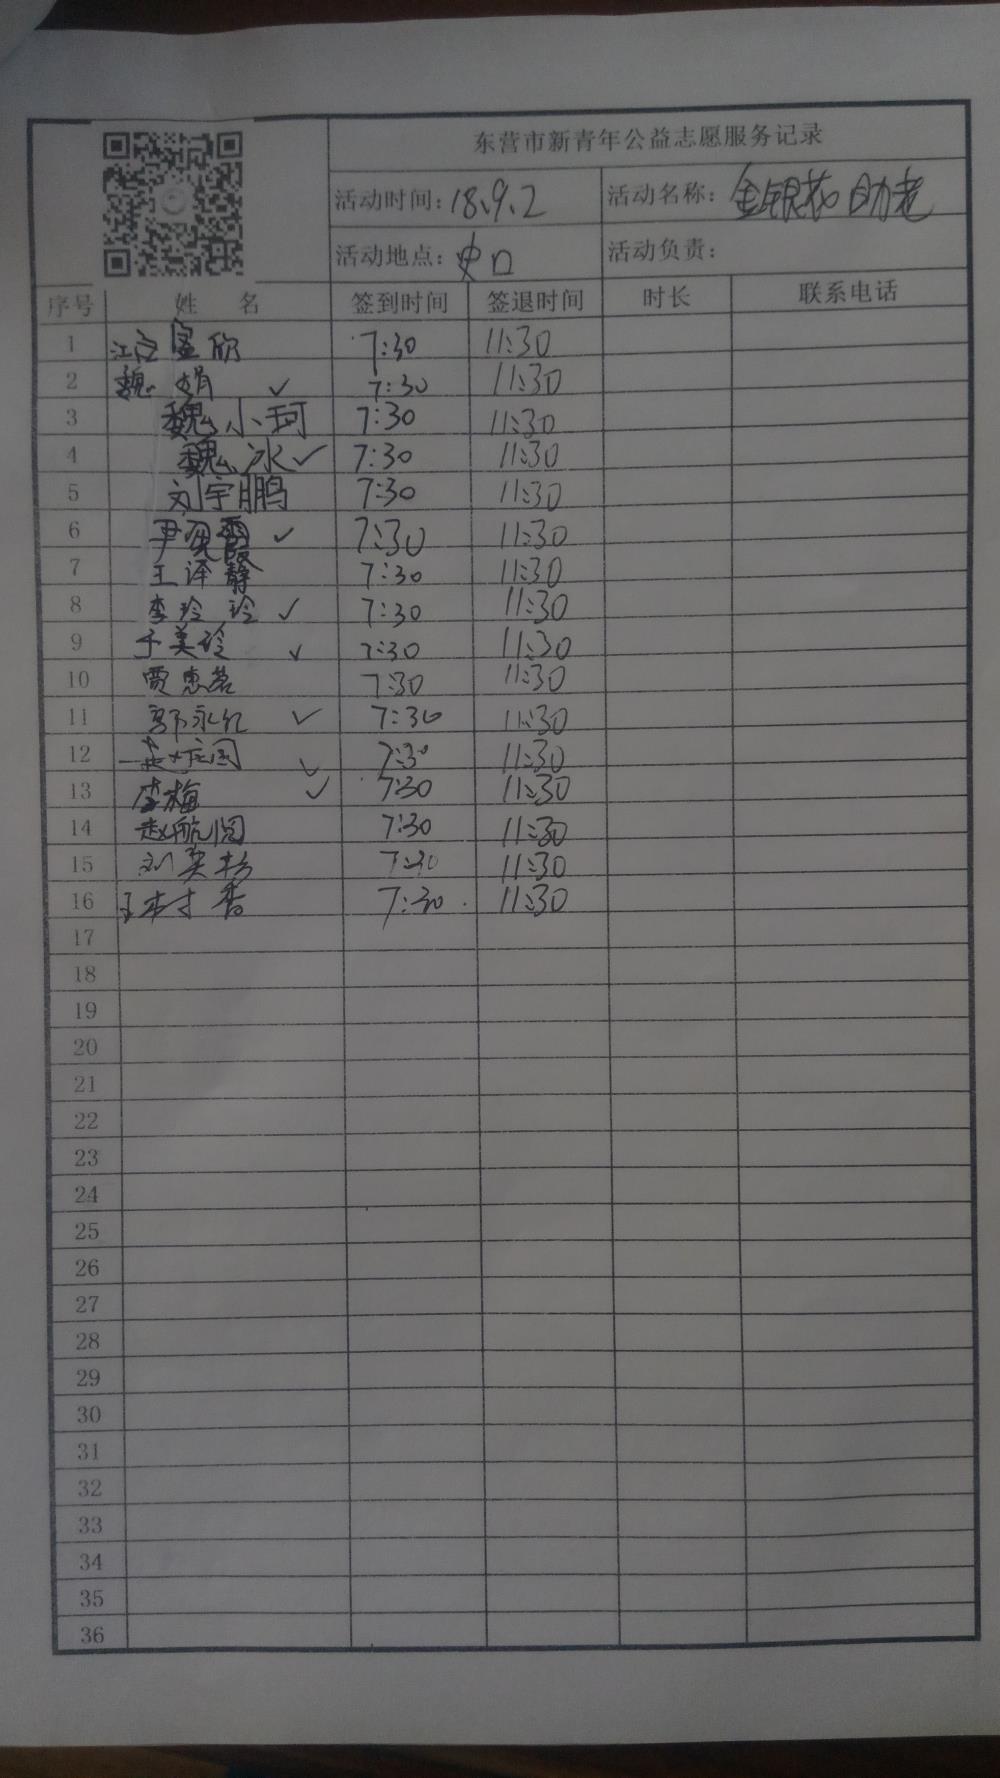 东营市新青年公益志愿服务记录
活动时间: 18.9.2 活动名称: 金银花助老
活动地点: 史口 活动负责:
序号 姓 名 签到时间 签退时间 时长 联系电话
1 7:30 11:30
2 魏娟 ✓ 7:30 11:30
3 魏小珂 7:30 11:30
4 魏冰 ✓ 7:30 11:30
5 刘宇鹏 7:30 11:30
6 尹 霞 ✓ 7:30 11:30
7 王译静 7:30 11:30
8 李玲玲 ✓ 7:30 11:30
9 于美玲 ✓ 7:30 11:30
10 贾惠茗 7:30 11:30
11 郭永红 ✓ 7:30 11:30
12 ✓ 7:30 11:30
13 李梅 ✓ 7:30 11:30
14 赵航 7:30 11:30
15 刘英杨 7:30 11:30
16 王 香 7:30 11:30
17
18
19
20
21
22
23
24
25
26
27
28
29
30
31
32
33
34
35
36